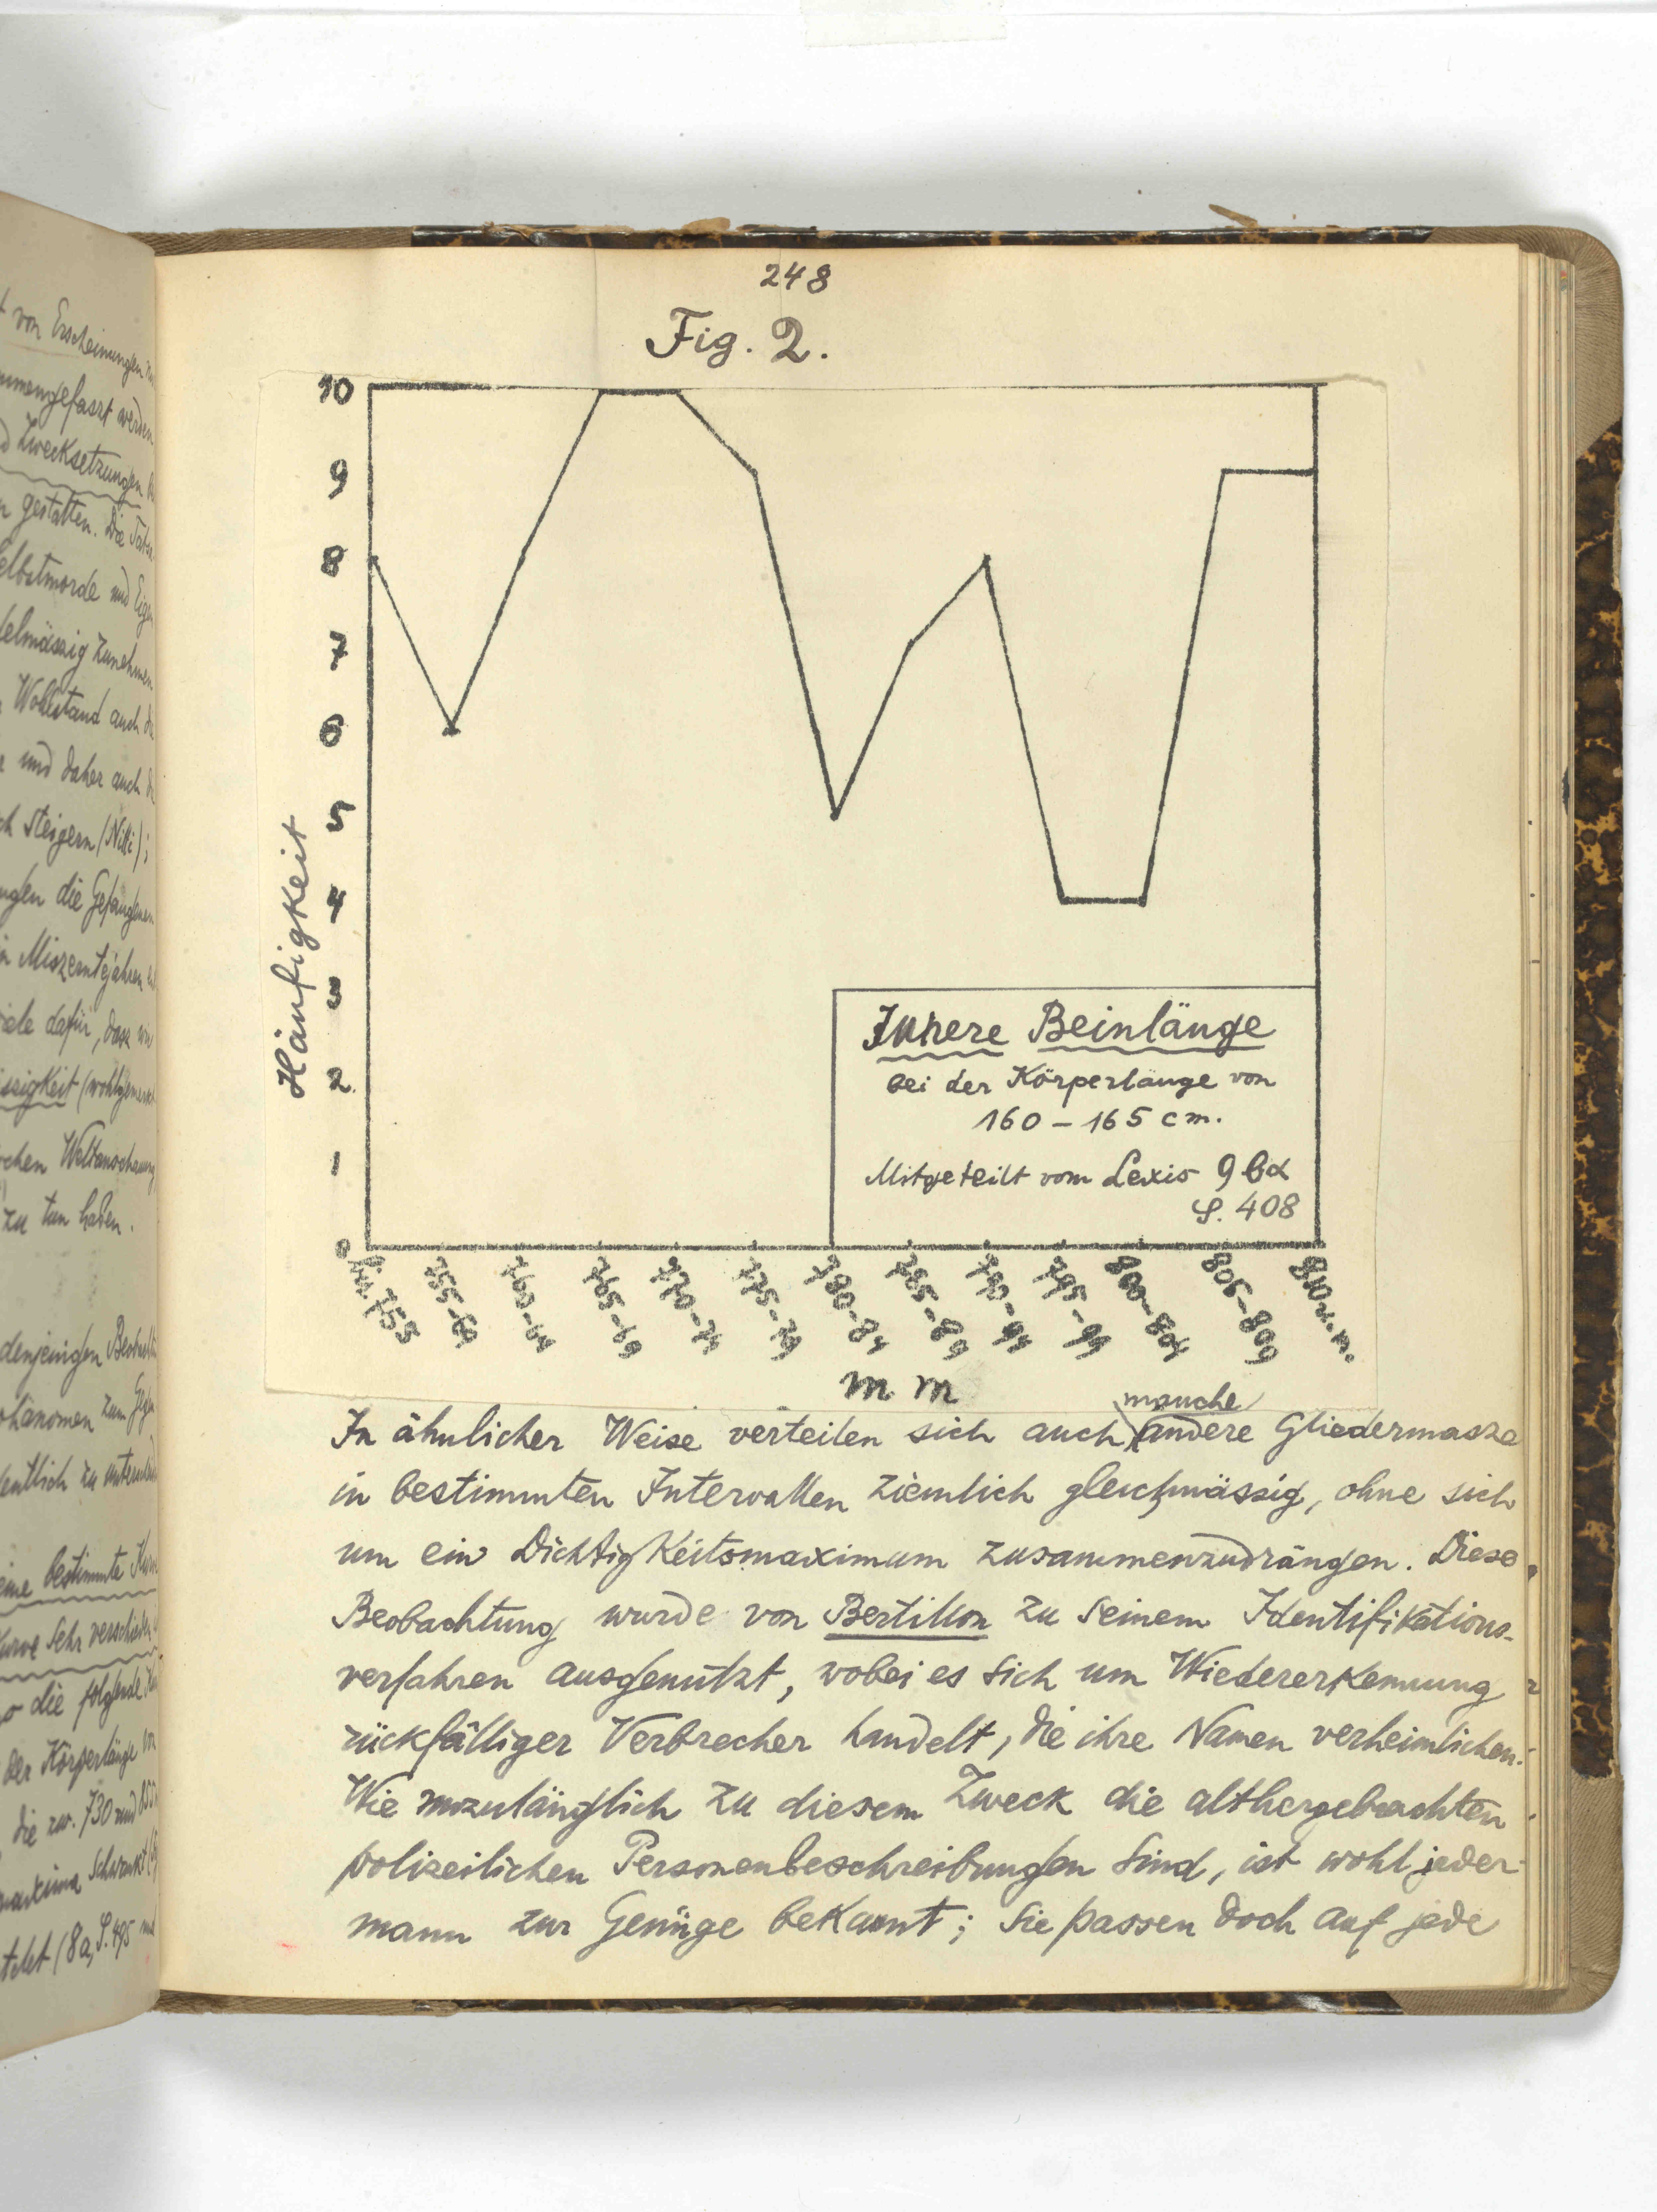 t von Erscheinungen
mmengefaszt werden
d Zwecksetzungen
n gestatten. Die Tats
elbstmorde und Eigen
elmässig zunehmen
Wohlstand auch
r und daher auch
ch steigern (Nitti);
ngen die Gefangenen
in Miszerntejahren
iele dafür, dasz
ssigkeit (wohlgemerkt
schen Weltanschauung
zu tun haben.
denjenigen Beobacht
phänomen zum Gegen
entlich zu
eine bestimmte Kurve
Kurve sehr verschieden
so die folgende
der Körperlänge von
die zw. 730 und 850
maxima schwankt
telet (8a, S. 495 und
248
Fig. 2.
10
9
8
7
6
5
4
3
2
1
0
Häufigkeit
Innere Beinlänge
bei der Körperlänge von
160 – 165 cm.
Mitgeteilt vom Lexis 9 bd
S. 408
bis 755
755-59
760-64
765-69
770-74
775-79
780-84
785-89
790-94
795-99
800-804
805-809
810 u. m.
mm
In ähnlicher Weise verteilen sich auch manche andere Gliedermasze
in bestimmten Intervallen ziemlich gleichmässig, ohne sich
um ein Dichtigkeitsmaximum zusammenzudrängen. Diese
Beobachtung wurde von Bertillon zu seinem Identifikations-
verfahren ausgenützt, wobei es sich um Wiedererkennung
rückfälliger Verbrecher handelt, die ihre Namen verheimlichen.
Wie unzulänglich zu diesem Zweck die althergebrachten
polizeilichen Personenbeschreibungen sind, ist wohl jeder-
mann zur Genüge bekannt; sie passen doch auf jede